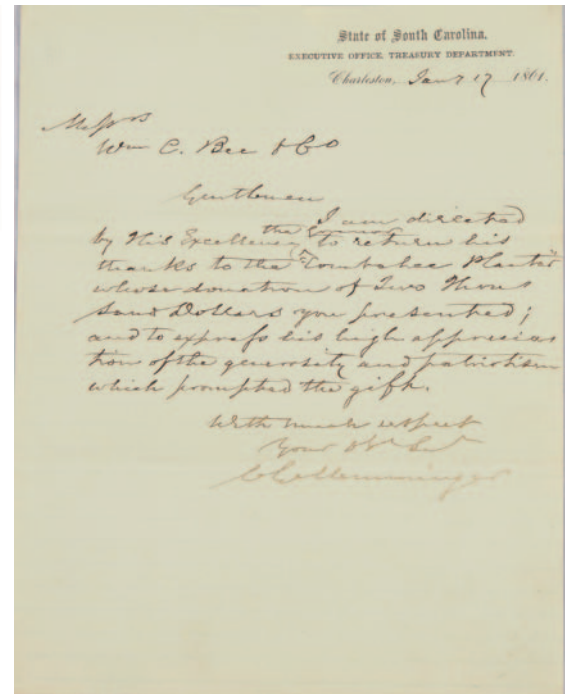 State of South Carolina.
EXECUTIVE OFFICE, TREASURY DEPARTMENT.
Charleston, Jany 17 1861.
Messrs
Wm C. Bee & Co
Gentlemen
I am directed
by His Excellency the Governor to return his
thanks to the Combahee Planters
whose donation of Two Thou
sand Dollars you presented;
and to express his high apprecia
tion of the generosity and patriotism
which prompted the gift.
With much respect
Your Obt Sevt
C G Memminger